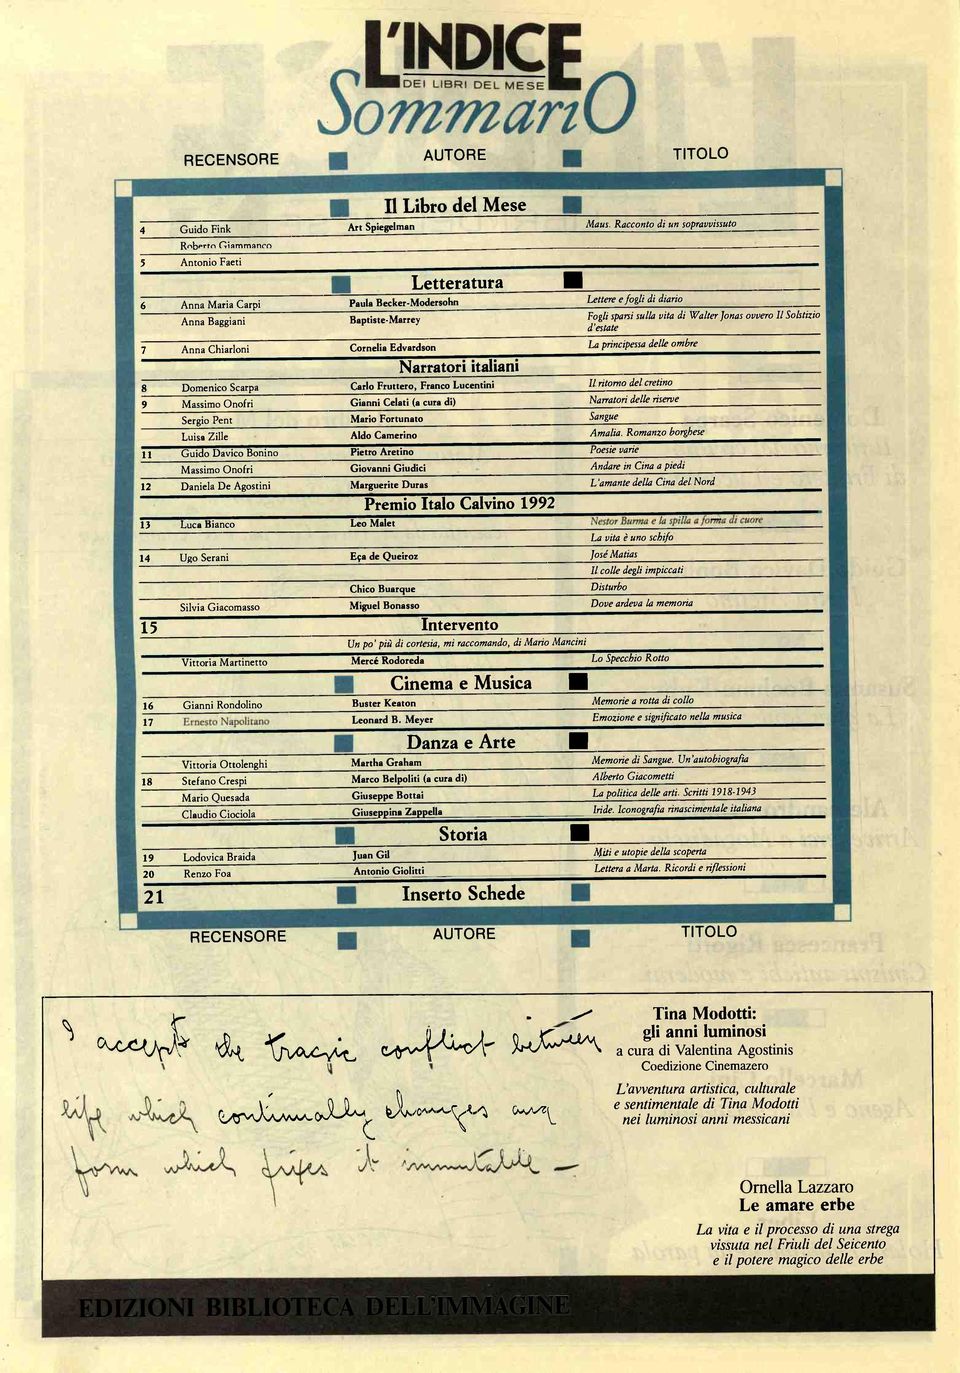 L'INDICE
DEI LIBRI DEL MESE
SommariO
RECENSORE AUTORE TITOLO
Il Libro del Mese
4 Guido Fink Art Spiegelman Maus. Racconto di un sopravvissuto
Roberto Giammanco
5 Antonio Faeti
Letteratura
6 Anna Maria Carpi Paula Becker-Modersohn Lettere e fogli di diario
Anna Baggiani Baptiste-Marrey Fogli sparsi sulla vita di Walter Jonas ovvero Il Solstizio
d'estate
7 Anna Chiarloni Cornelia Edvardson La principessa delle ombre
Narratori italiani
8 Domenico Scarpa Carlo Fruttero, Franco Lucentini Il ritorno del cretino
9 Massimo Onofri Gianni Celati (a cura di) Narratori delle riserve
Sergio Pent Mario Fortunato Sangue
Luisa Zille Aldo Camerino Amalia. Romanzo borghese
11 Guido Davico Bonino Pietro Aretino Poesie varie
Massimo Onofri Giovanni Giudici Andare in Cina a piedi
12 Daniela De Agostini Marguerite Duras L'amante della Cina del Nord
Premio Italo Calvino 1992
13 Luca Bianco Leo Malet Nestor Burma e la spilla a forma di cuore
La vita è uno schifo
14 Ugo Serani Eça de Queiroz José Matias
Il colle degli impiccati
Chico Buarque Disturbo
Silvia Giacomasso Miguel Bonasso Dove ardeva la memoria
15 Intervento
Un po' più di cortesia, mi raccomando, di Mario Mancini
Vittoria Martinetto Mercé Rodoreda Lo Specchio Rotto
Cinema e Musica
16 Gianni Rondolino Buster Keaton Memorie a rotta di collo
17 Ernesto Napolitano Leonard B. Meyer Emozione e significato nella musica
Danza e Arte
Vittoria Ottolenghi Martha Graham Memorie di Sangue. Un'autobiografia
18 Stefano Crespi Marco Belpoliti (a cura di) Alberto Giacometti
Mario Quesada Giuseppe Bottai La politica delle arti. Scritti 1918-1943
Claudio Ciociola Giuseppina Zappella Iride. Iconografia rinascimentale italiana
Storia
19 Lodovica Braida Juan Gil Miti e utopie della scoperta
20 Renzo Foa Antonio Giolitti Lettera a Marta. Ricordi e riflessioni
21 Inserto Schede
RECENSORE AUTORE TITOLO
I accepts the tragic conflict between
life which continually changes and
form which fixes it immutable —
Tina Modotti:
gli anni luminosi
a cura di Valentina Agostinis
Coedizione Cinemazero
L'avventura artistica, culturale
e sentimentale di Tina Modotti
nei luminosi anni messicani
Ornella Lazzaro
Le amare erbe
La vita e il processo di una strega
vissuta nel Friuli del Seicento
e il potere magico delle erbe
EDIZIONI BIBLIOTECA DELL'IMMAGINE